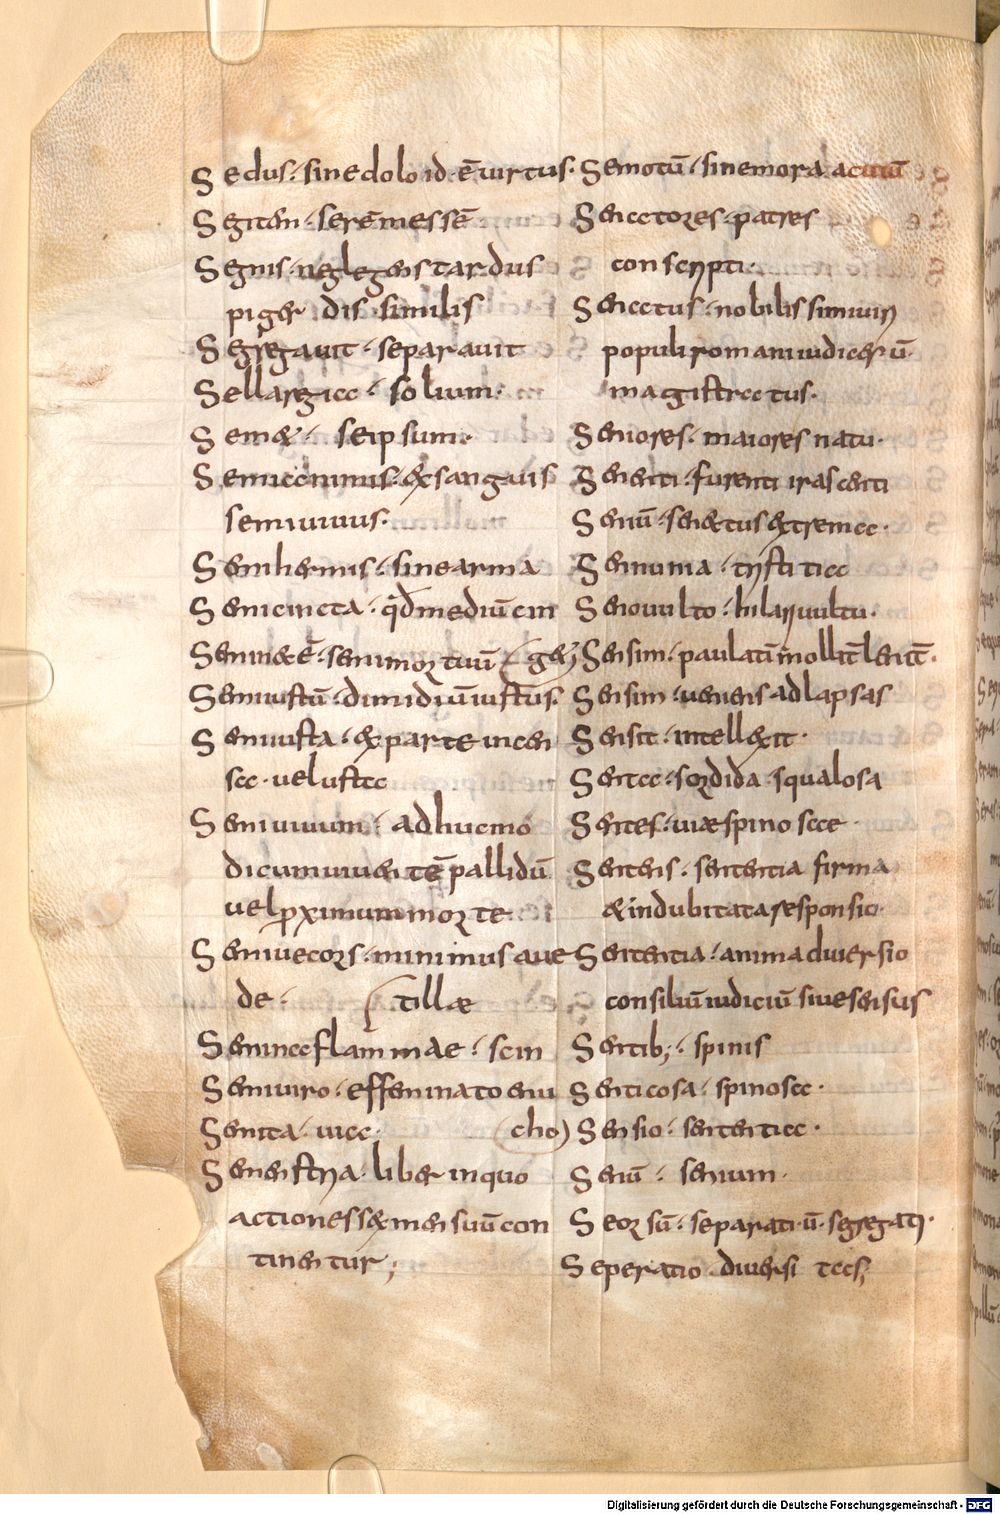 Sedus · sinedolo id · ē uirtus ·
Segitōn · serēmessē
Segnis · neglegens tardus
piger dis similis
Segregauit · separauit
Sellaregiae · solium ·
Semet · seipsum ·
Semianimis · exsanguis
semiuiuus ·
Semihermis · sine arma
Semicincta · qđ mediū cin
(get)
Semineċē · semimortuū
Semiustū · dimidiū iustus ·
Semiusta · ex parte incen
sa · uel usta
Semiuiuum · adhuc mo
dicum uiuentē pallidū
uel proximum morte
Semiuecors · minimus aue
de ·
(tillæ
Semineceflammae · scin
Semiuiro · effeminato eni
Semita · uia ·
(cho)
Senenstria · liber in quo
actiones & mensuū con
tinentur ;
Semotū · sinemora acutū
Senatores · patres
conscripti ·
Senatus · nobilissimi uiri
populi romani iudices ū
magistratus ·
Seniores · maiores natu ·
Senenti · furenti irascenti
Seniū · senectus extrema ·
Semuma · tristitia
Senouulto · hilari uultu ·
Sensim · paulatī mollit leīt ·
Sensim · ueniens adlapsas
Sensit · intellexit ·
Senta · sordida · squalosa
Sentes · uiæ spinosae ·
Sentens · sententia firma
& indubitata responsio ·
Sententia · animaduersio
consiliū iudiciū siue sensus
Sentib; · spinis
Senticosa · spinosa ·
Sensio · sententia ·
Seniū · senium ·
Seorsū · separati · ū · segregati ·
Seperatio diuersitas ;
Digitalisierung gefördert durch die Deutsche Forschungsgemeinschaft · DFG